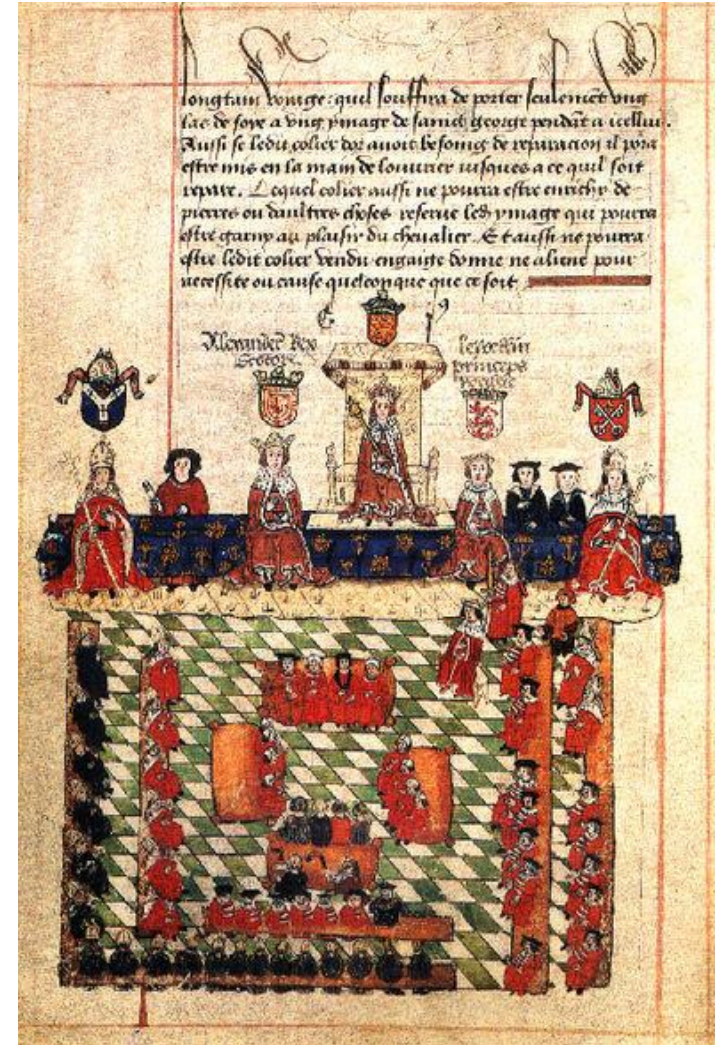 longtain voiage: quil souffira de porter seulemēt vng
las de soye a vng ymage de sainct george pendāt a icelluy.
Aussi se ledit colier dor auoit besoing de reparacion il pora
estre mis en la main de louurier iusques a ce quil soit
repare. Lequel colier aussi ne pourra estre enrichy de
pierres ou daultres choses reserue led ymage qui pourra
estre garny au plaisir du cheualier. Et aussi ne pourra
estre ledit colier vendu engaige donne ne aliene pour
necessite ou cause quelconque que ce soit
Alexander Rex
Scotor
princeps